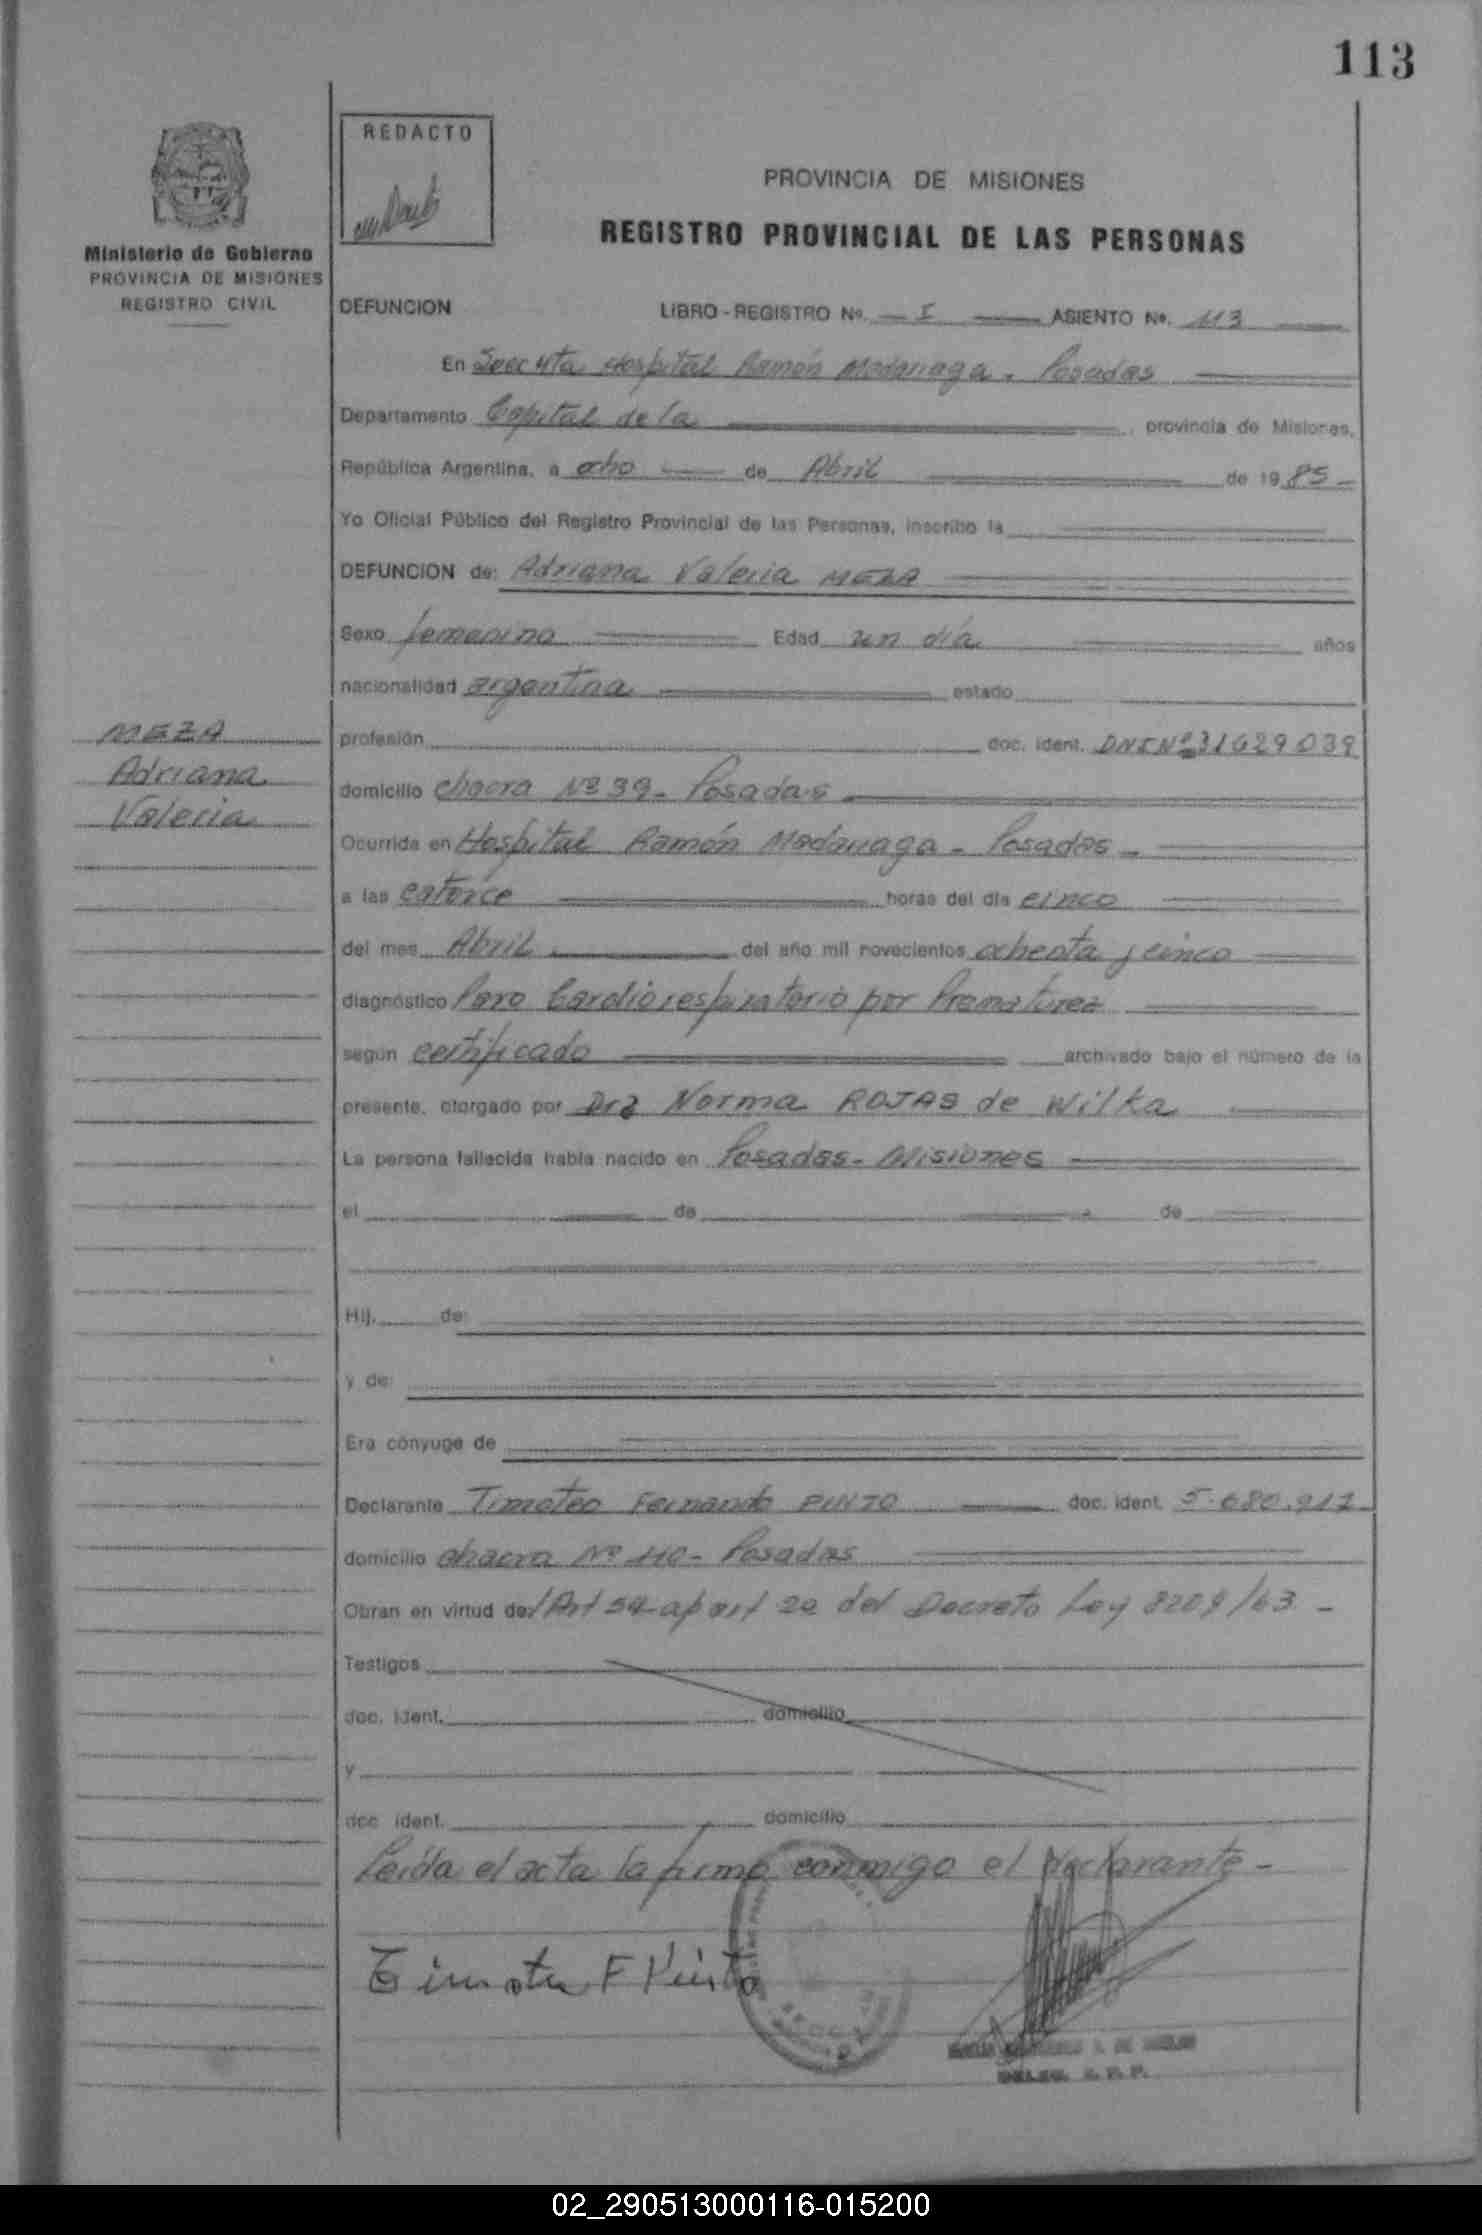 113
REDACTO
PROVINCIA DE MISIONES
REGISTRO PROVINCIAL DE LAS PERSONAS
Ministerio de Gobierno
PROVINCIA DE MISIONES
REGISTRO CIVIL
DEFUNCION LIBRO - REGISTRO Nº. I ASIENTO Nº. 113
En Hospital Ramón Madariaga - Posadas
Departamento Capital de la provincia de Misiones,
República Argentina, a ocho de Abril de 1985-
Yo Oficial Público del Registro Provincial de las Personas, inscribo la
DEFUNCION de: Adriana Valeria MEZA
Sexo femenino Edad un día años
nacionalidad argentina estado
MEZA
Adriana
Valeria
profesión doc. ident. DNI Nº 31629039
domicilio chacra Nº 39 - Posadas
Ocurrida en Hospital Ramón Madariaga - Posadas -
a las catorce horas del día cinco
del mes Abril del año mil novecientos ochenta y cinco
diagnóstico Paro Cardiorespiratorio por Prematurez
según certificado archivado bajo el número de la
presente, otorgado por Dra Norma ROJAS de Wilka
La persona fallecida había nacido en Posadas - Misiones
el de de
Hij. de:
y de:
Era cónyuge de
Declarante Timoteo Fernando PINTO doc. ident. 5.680.917
domicilio chacra Nº 110 - Posadas
Obran en virtud del Art 54 apart 2º del Decreto Ley 8204/63 -
Testigos
doc. ident. domicilio
y
doc. ident. domicilio
Leída el acta la firma conmigo el declarante -
Timoteo F Pinto
DELEG. R. P. P.
02_290513000116-015200